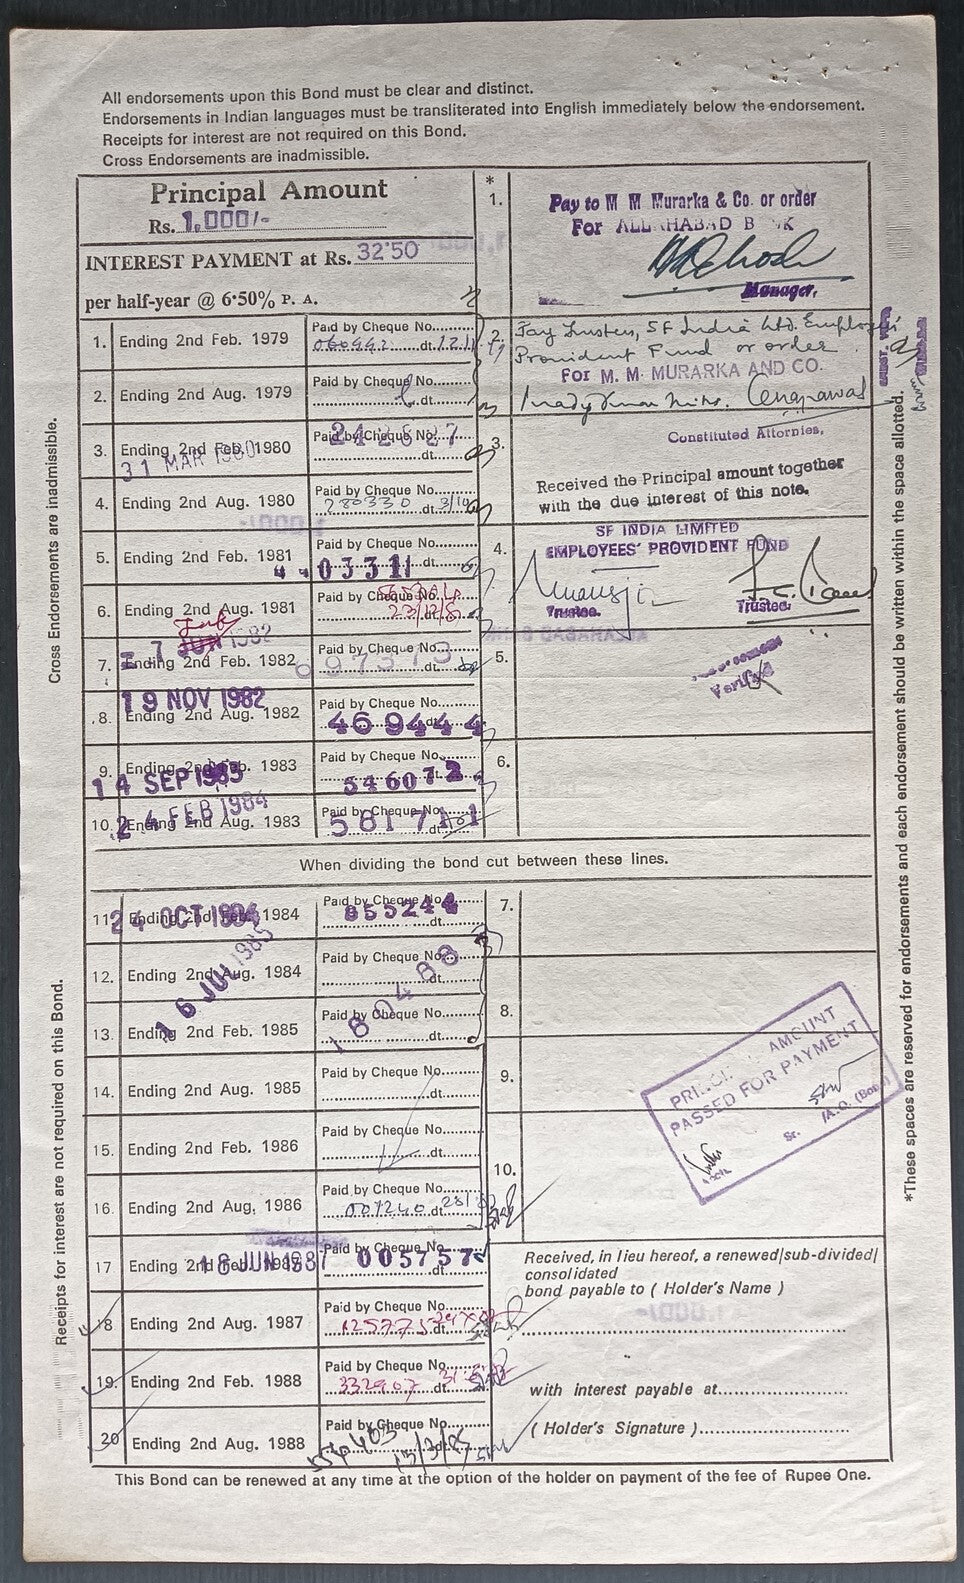 All endorsements upon this Bond must be clear and distinct.
Endorsements in Indian languages must be transliterated into English immediately below the endorsement.
Receipts for interest are not required on this Bond.
Cross Endorsements are inadmissible.
Principal Amount
Rs. 1,000/-
INTEREST PAYMENT at Rs. 32·50
per half-year @ 6·50% P. A.
1. Ending 2nd Feb. 1979 Paid by Cheque No..........
060992 dt.
2. Ending 2nd Aug. 1979 Paid by Cheque No..........
dt.
3. Ending 2nd Feb. 1980 Paid by Cheque No.
31 MAR 1980 dt.
4. Ending 2nd Aug. 1980 Paid by Cheque No..........
280330 dt.
5. Ending 2nd Feb. 1981 Paid by Cheque No..........
dt.
6. Ending 2nd Aug. 1981 Paid by Cheque No.
7. Ending 2nd Feb. 1982 Paid by Cheque No.
1982 dt.
8. Ending 2nd Aug. 1982 Paid by Cheque No..........
19 NOV 1982 469444 dt.
9. Ending 2nd Feb. 1983 Paid by Cheque No.
14 SEP 1983 546072
10. Ending 2nd Aug. 1983 Paid by Cheque No.
24 FEB 1984 581711 dt.
When dividing the bond cut between these lines.
11. Ending 2nd Feb. 1984 Paid by Cheque No.
24 OCT 1984 855244 dt.
12. Ending 2nd Aug. 1984 Paid by Cheque No.
dt.
13. Ending 2nd Feb. 1985 Paid by Cheque No..........
16 1985 180488 dt.
14. Ending 2nd Aug. 1985 Paid by Cheque No..........
dt.
15. Ending 2nd Feb. 1986 Paid by Cheque No..........
dt.
16. Ending 2nd Aug. 1986 Paid by Cheque No.
007240 dt.
17 Ending 2nd Feb. 1987 Paid by Cheque No.
18 JUN 1987 005757
18 Ending 2nd Aug. 1987 Paid by Cheque No.
125775 dt.
19. Ending 2nd Feb. 1988 Paid by Cheque No.
332907 dt.
20 Ending 2nd Aug. 1988 Paid by Cheque No..........
*
1. Pay to M M Murarka & Co. or order
For ALLAHABAD B NK
Manager.
2. Pay Trustees, SF India Ltd. Employees
Provident Fund or order
For M. M. MURARKA AND CO.
Constituted Attornies.
3.
Received the Principal amount together
with the due interest of this note.
4. SF INDIA LIMITED
EMPLOYEES' PROVIDENT FUND
Trustee. Trustee.
5.
Verified
6.
7.
8.
9.
10.
AMOUNT
PASSED FOR PAYMENT
Sr.
Received, in lieu hereof, a renewed|sub-divided|
consolidated
bond payable to ( Holder's Name )
with interest payable at....................
( Holder's Signature )....................
This Bond can be renewed at any time at the option of the holder on payment of the fee of Rupee One.
Cross Endorsements are inadmissible.
Receipts for interest are not required on this Bond.
*These spaces are reserved for endorsements and each endorsement should be written within the space allotted.